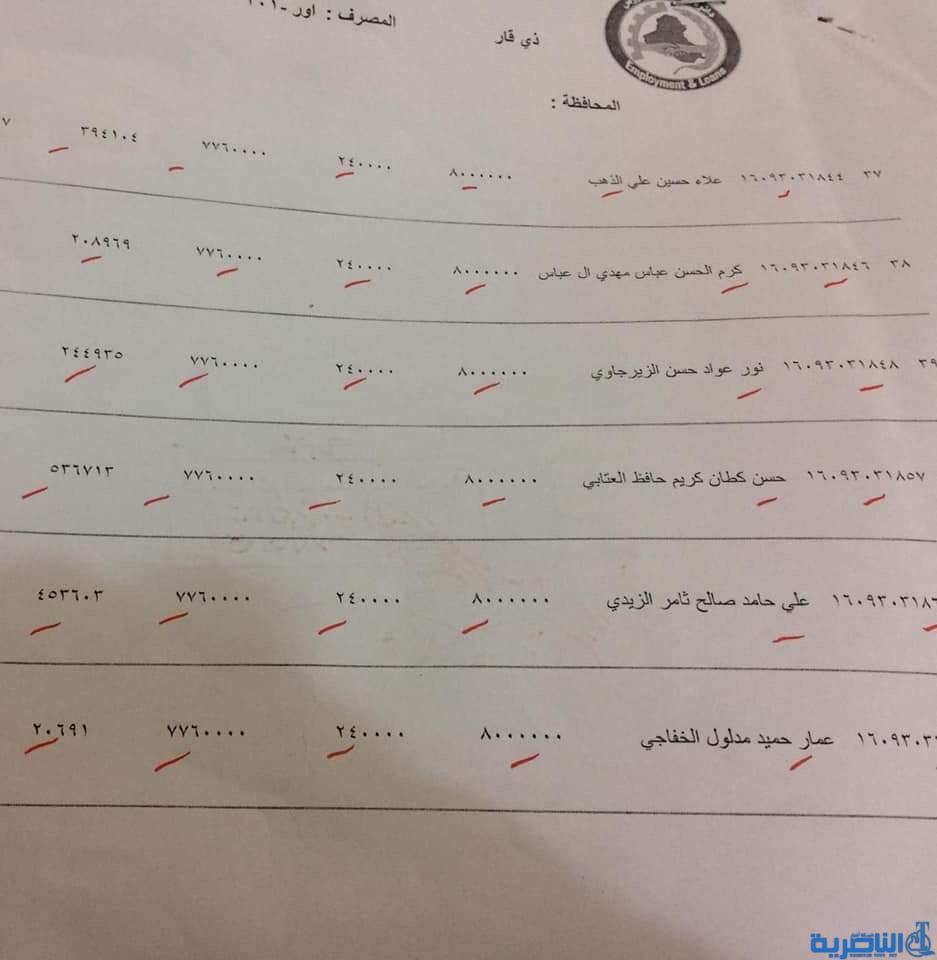 المصرف : اور -
ذي قار
Employment & Loans
المحافظة :
٣٧ ١٦٠٩٣٠٣١٨٤٤ علاء حسين علي الذهب ٨٠٠٠٠٠٠ ٢٤٠٠٠٠ ٧٧٦٠٠٠٠ ٣٩٤١٠٤ ٧
٣٨ ١٦٠٩٣٠٣١٨٤٦ كرم الحسن عباس مهدي ال عباس ٨٠٠٠٠٠٠ ٢٤٠٠٠٠ ٧٧٦٠٠٠٠ ٢٠٨٩٦٩
٣٩ ١٦٠٩٣٠٣١٨٤٨ نور عواد حسن الزيرجاوي ٨٠٠٠٠٠٠ ٢٤٠٠٠٠ ٧٧٦٠٠٠٠ ٢٤٤٩٣٥
١٦٠٩٣٠٣١٨٥٧ حسن كطان كريم حافظ العتابي ٨٠٠٠٠٠٠ ٢٤٠٠٠٠ ٧٧٦٠٠٠٠ ٥٣٦٧١٣
١٦٠٩٣٠٣١٨٦ علي حامد صالح ثامر الزيدي ٨٠٠٠٠٠٠ ٢٤٠٠٠٠ ٧٧٦٠٠٠٠ ٤٥٣٦٠٣
١٦٠٩٣٠٣ عمار حميد مدلول الخفاجي ٨٠٠٠٠٠٠ ٢٤٠٠٠٠ ٧٧٦٠٠٠٠ ٢٠٦٩١
الناصرية